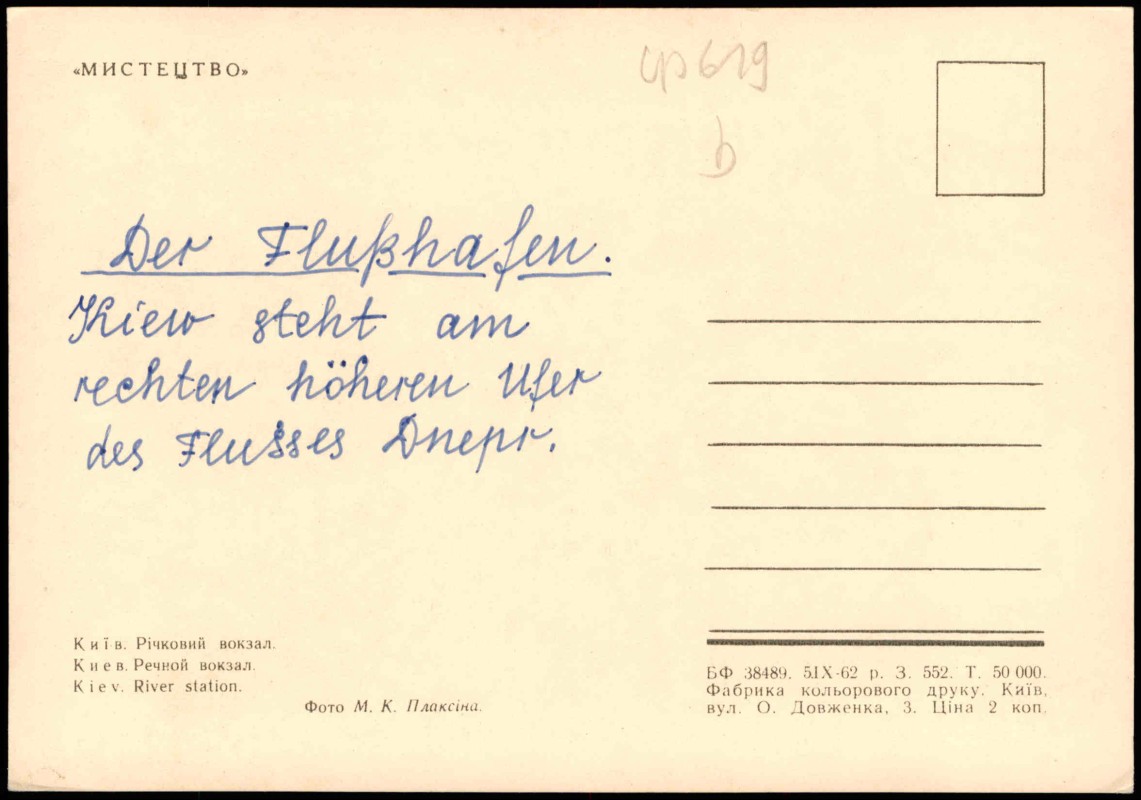 «МИСТЕЦТВО»
ср 619
b
Der Flußhafen.
Kiew steht am
rechten höheren Ufer
des Flusses Dnepr.
Київ. Річковий вокзал.
Киев. Речной вокзал.
Kiev. River station.
Фото М. К. Плаксіна.
БФ 38489. 5.IX-62 р. З. 552. Т. 50 000.
Фабрика кольорового друку. Київ,
вул. О. Довженка, 3. Ціна 2 коп.